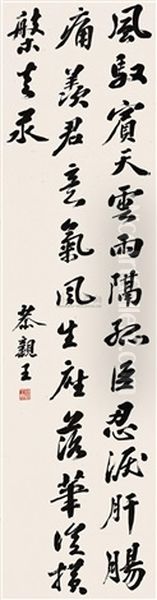 風馭賓天雲雨隔孤臣忍淚肝腸
痛羨君意氣風生座落筆縱橫
槃走汞
恭親王